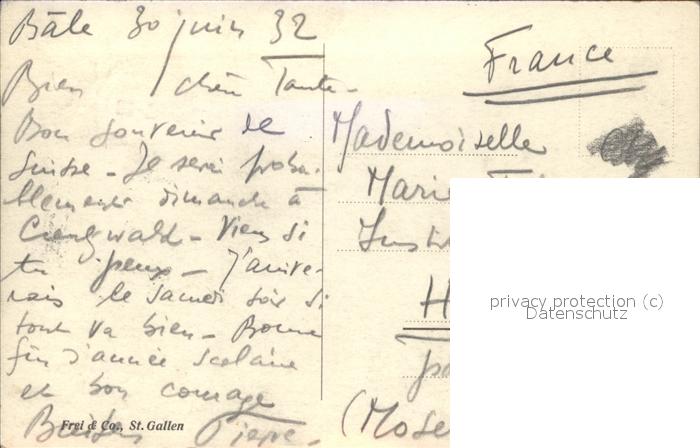 Bâle 30 juin 32
Bien chère Tante -
Bon souvenir de
Suisse - Je serai proba-
blement dimanche à
Creutzwald - Viens si
tu peux - J'arrive-
rais le samedi soir si
tout va bien - Bonne
fin d'année scolaire
et bon courage
Baisers Pierre -
Frei & Co., St. Gallen
France
Mademoiselle
Marie
Insti
H
(Mose
privacy protection (c)
Datenschutz